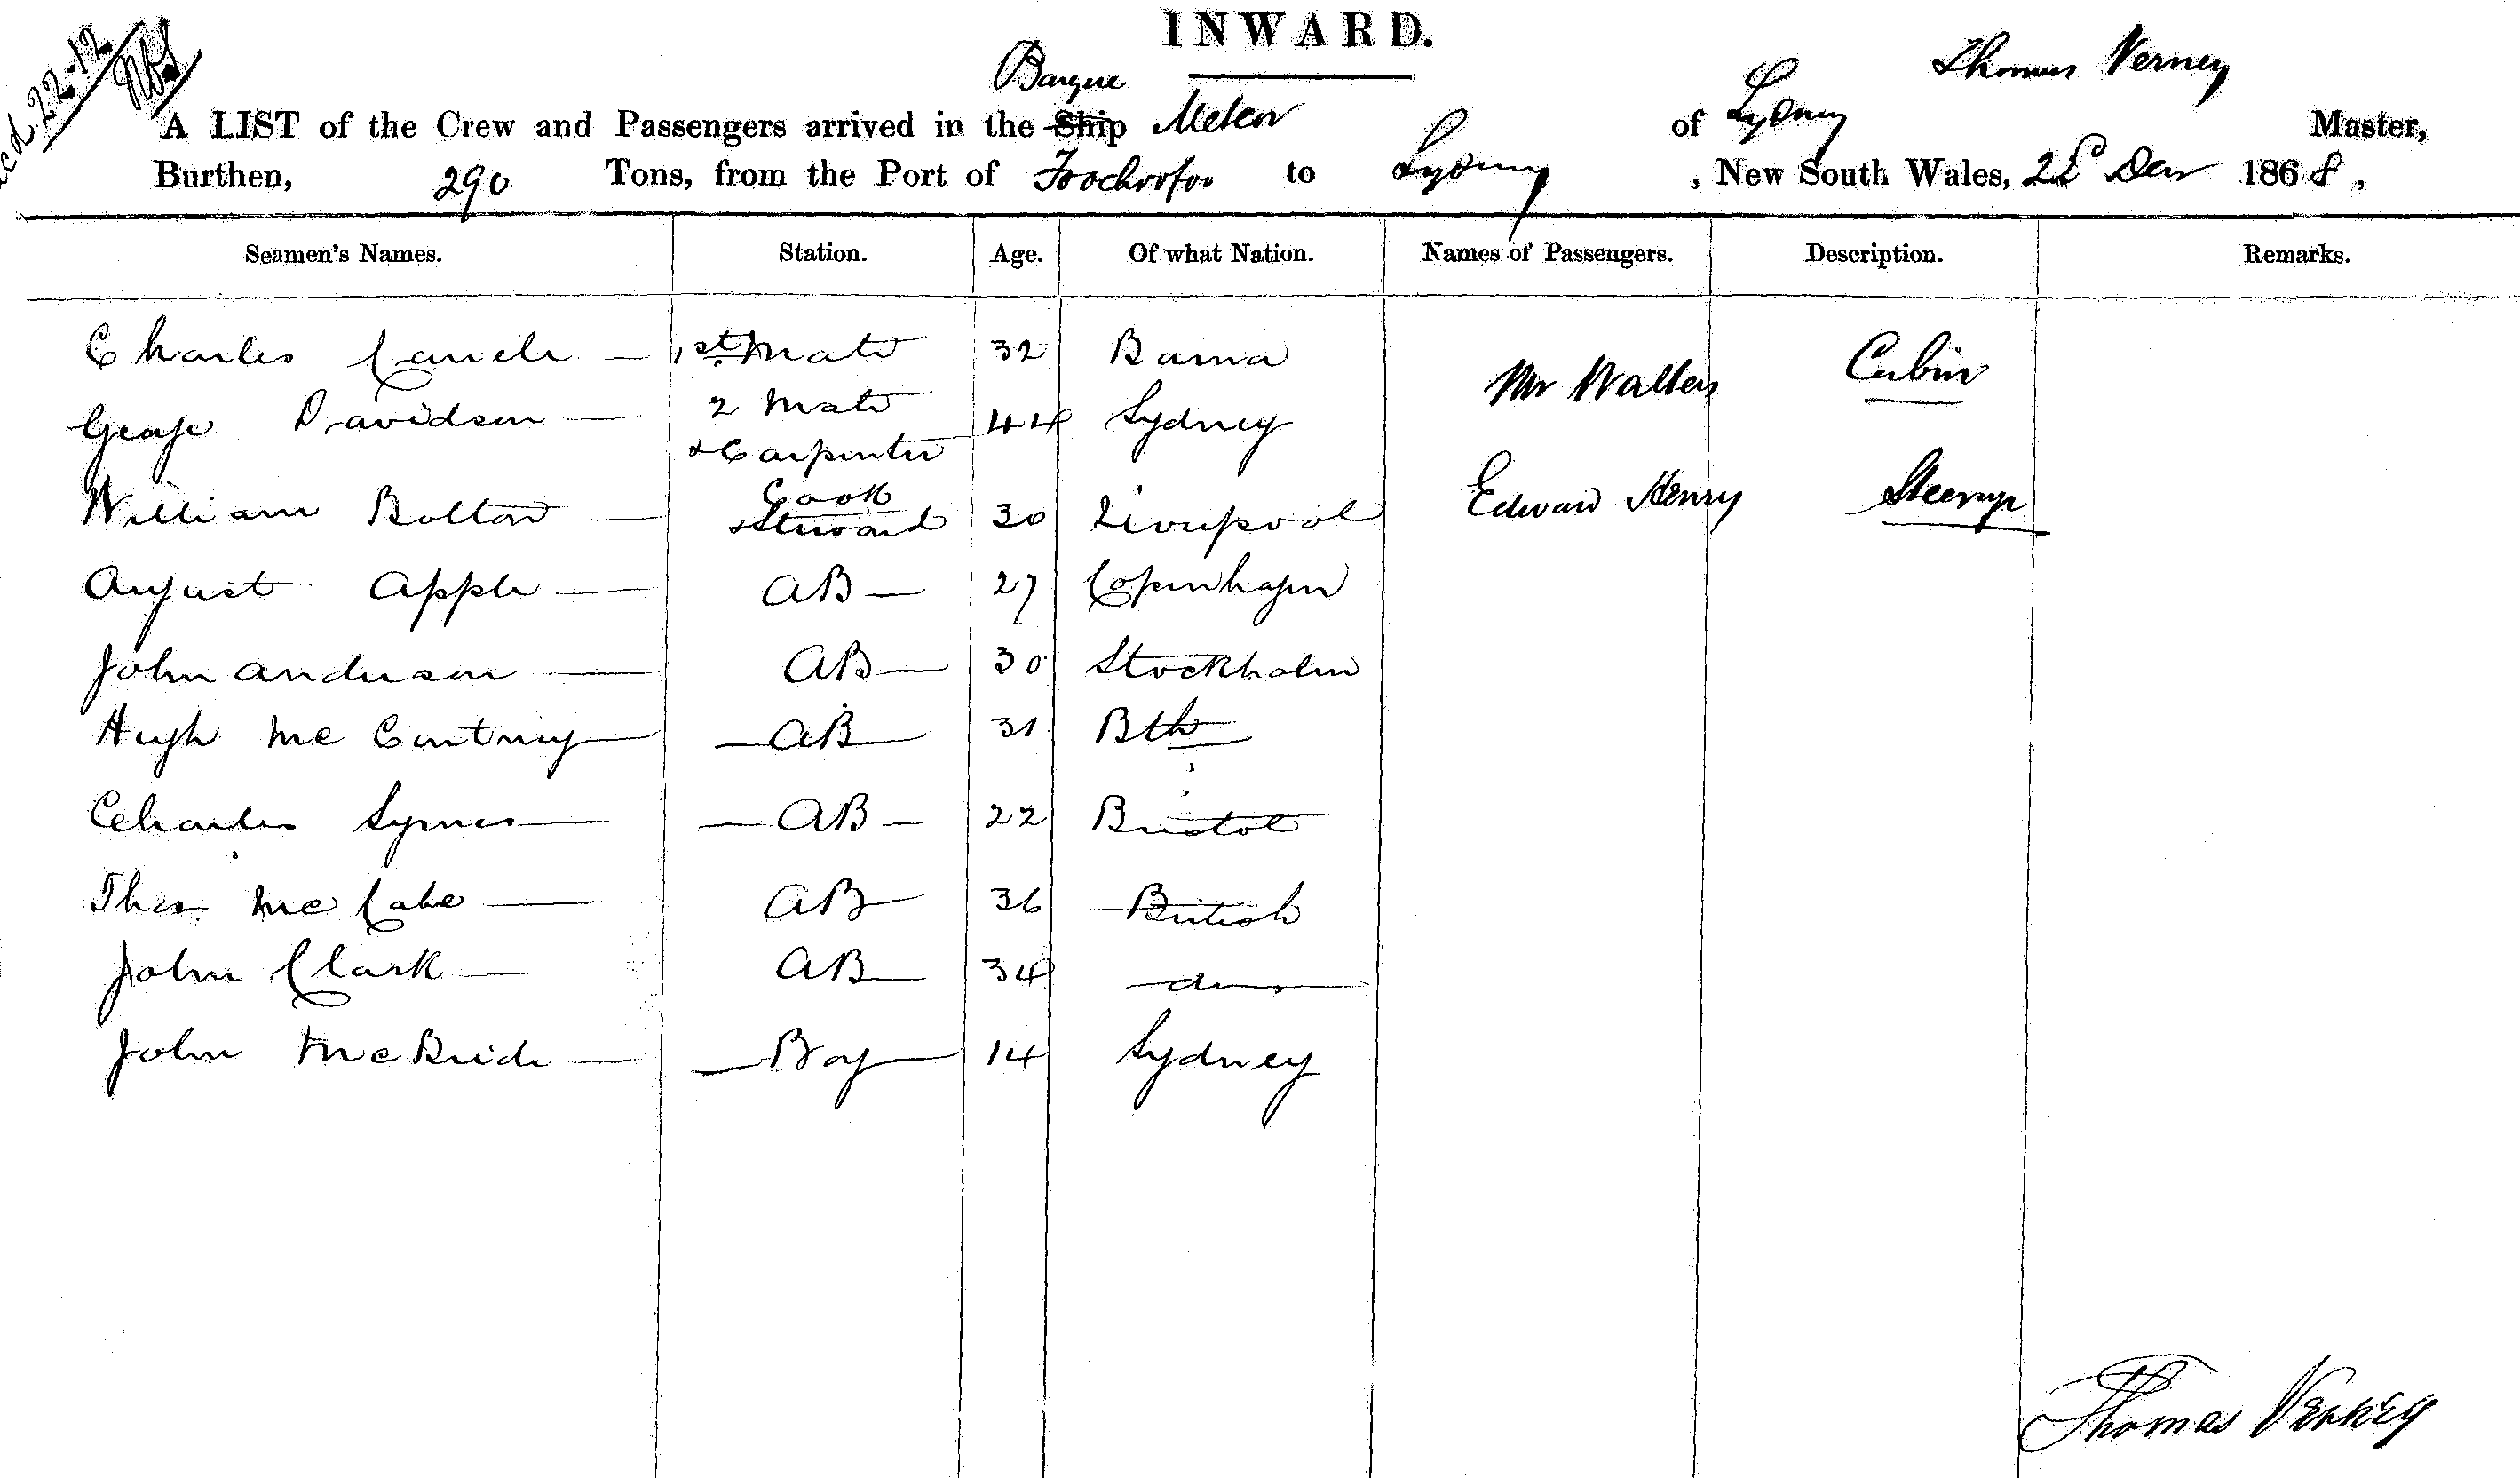 INWARD.
22-12
Barque Thomas Verney
A LIST of the Crew and Passengers arrived in the Ship Meteor of Sydney Master,
Burthen, 290 Tons, from the Port of to Sydney , New South Wales, 22 Decr 1868,
Seamen's Names. Station. Age. Of what Nation. Names of Passengers. Description. Remarks.
Charles 1st Mate 32 Mr Walters Cabin
George Davidson 2 Mate 44 Sydney
& Carpenter
William Bolton Cook & Steward 30 Liverpool Edward Henry Steerage
August Apple AB 27 Copenhagen
John Anderson AB 30 Stockholm
Hugh McCartney AB 31 Bth
Charles Symes AB 22 Bristol
Thos McCabe AB 36 British
John Clark AB 34 do
John McBride Boy 14 Sydney
Thomas Verney